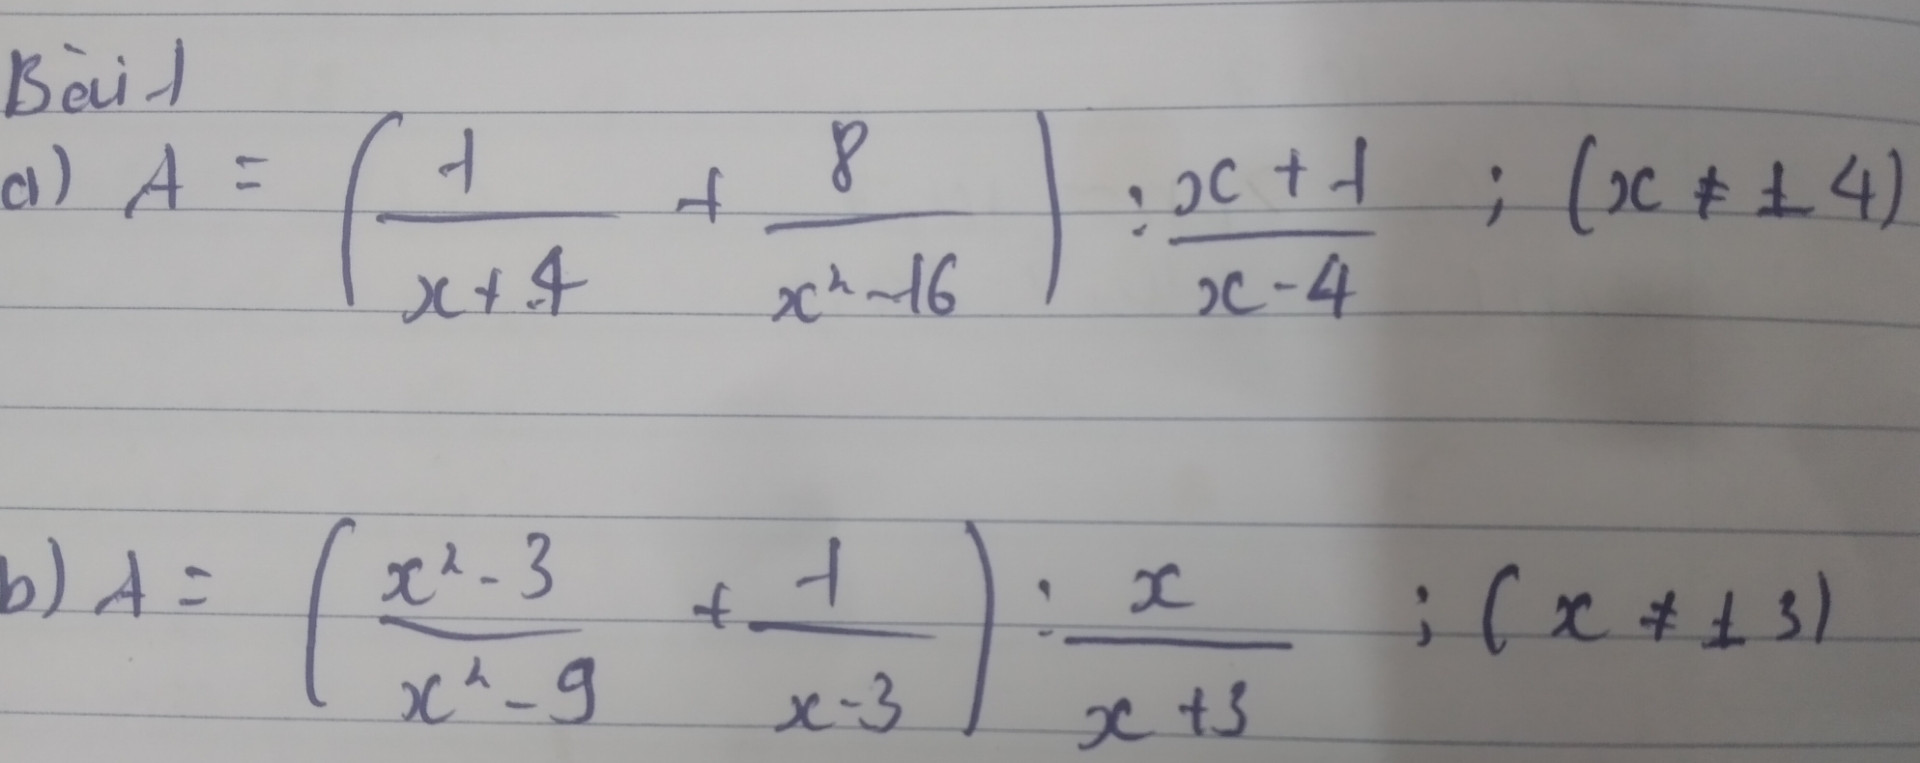 Bài 1
a) A = (1/(x+4) + 8/(x²-16)) : (x+1)/(x-4) ; (x ≠ ±4)
b) A = ((x²-3)/(x²-9) + 1/(x-3)) : x/(x+3) ; (x ≠ ±3)